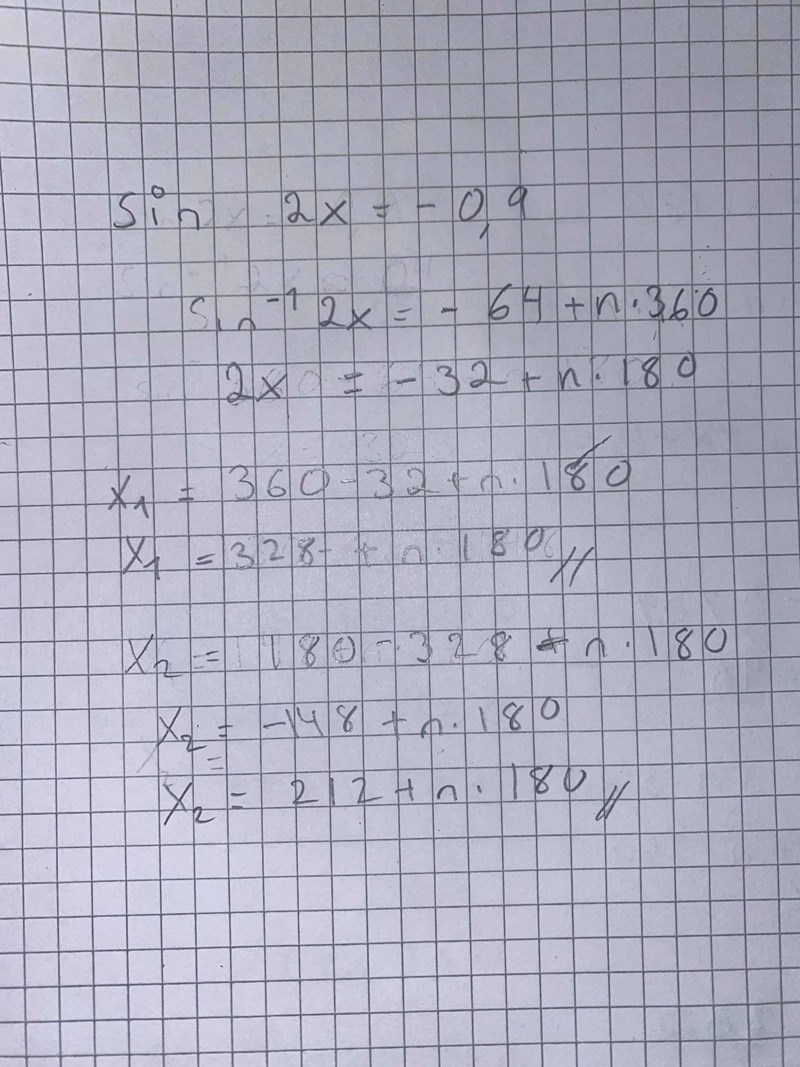 Sin 2x = - 0,9
Sin⁻¹ 2x = - 64 + n·360
2x = - 32 + n·180
x₁ = 360 - 32 + n·180
x₁ = 328 + n·180 //
x₂ = 180 - 328 + n·180
x₂ = -148 + n·180
x₂ = 212 + n·180 //